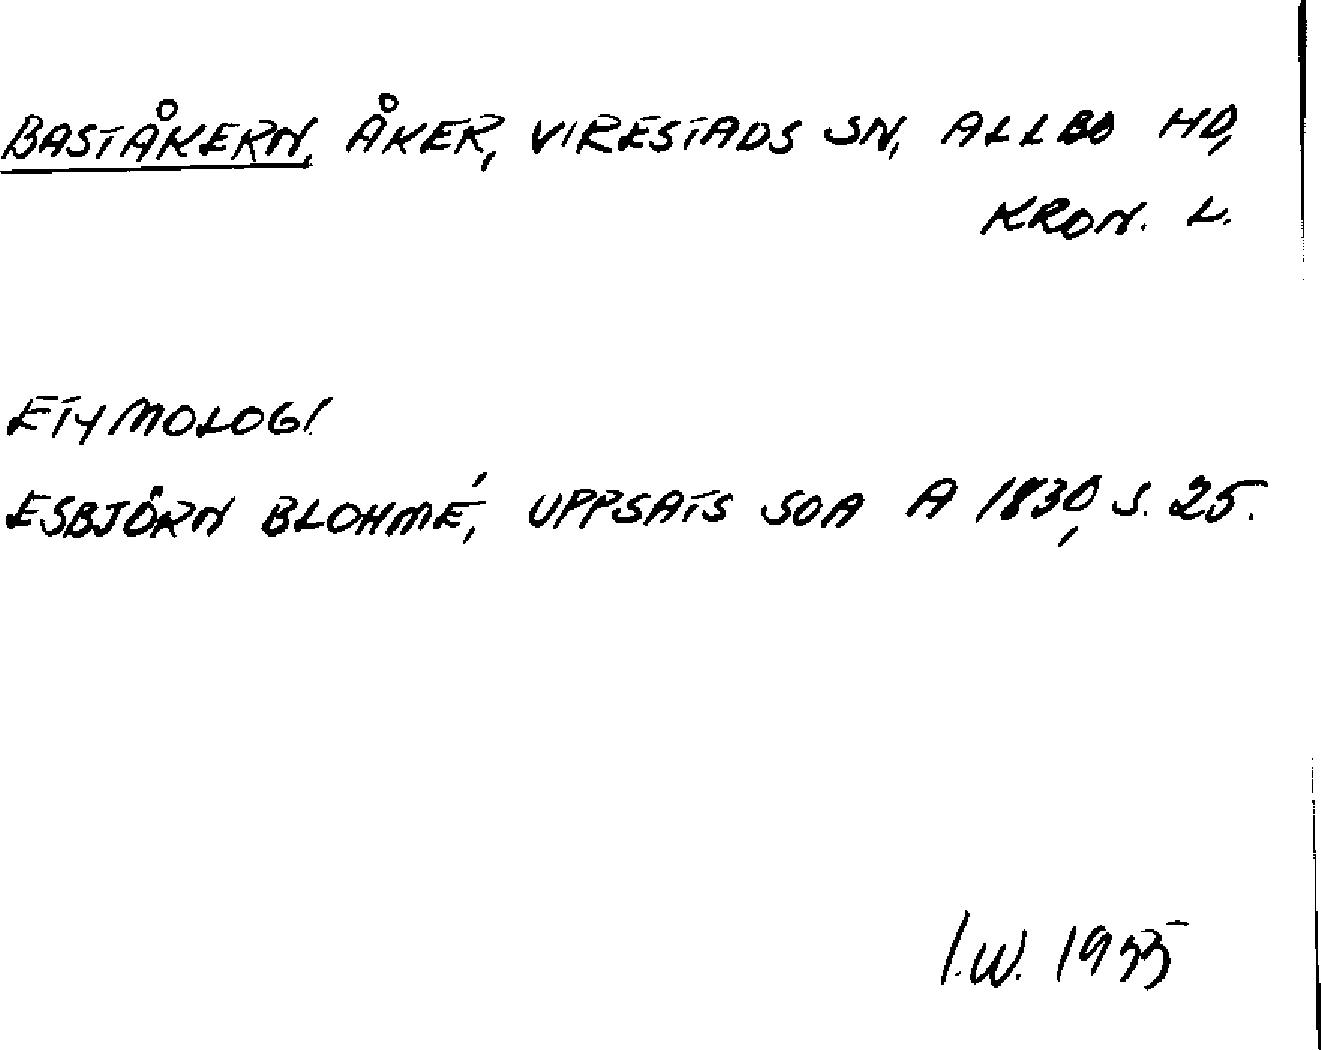 BASTÅKERN, ÅKER, VIRESTADS SN, ALLBO HD,
KRON. L.
ETYMOLOGI.
ESBJÖRN BLOHMÉ, UPPSATS SOA A 1830, S. 25.
I.W. 1955